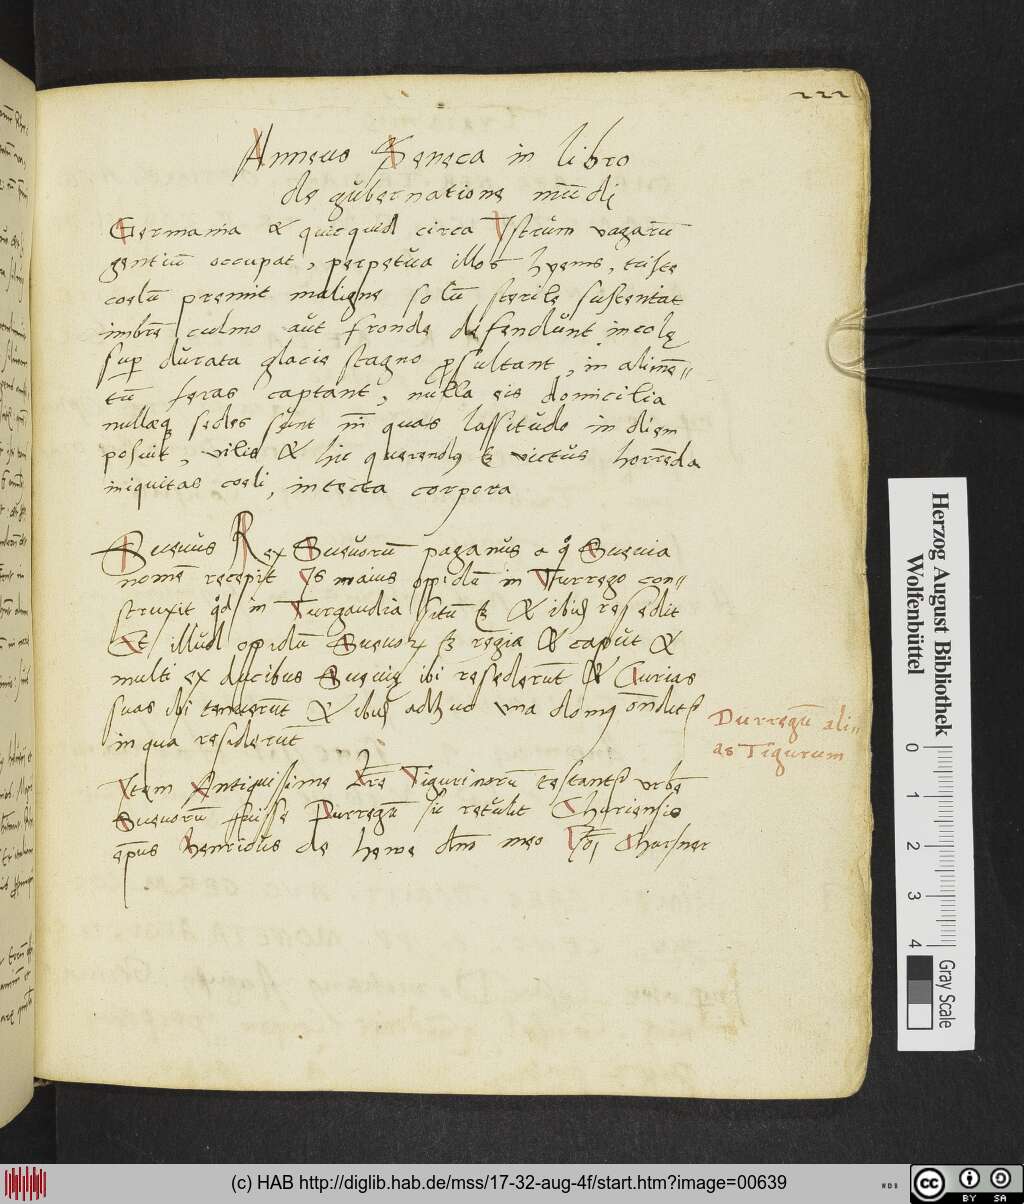 222
Anneus Seneca in libro
de gubernatione mūdi
Germania & quicquid circa Istrum vagarū
gentiū occupat, perpetua illos hyems, triste
coelū premit maligne solū sterile sustentat
imbrē culmo aut fronde defendunt incolę
sup durata glacie stagno psultant, in alimē=
tū feras captant, nulla eis domicilia
nullæq sedes sunt nī quas lassitudo in diem
posuit, vilis & hic querendq victus horrēda
iniquitas coeli, intecta corpora
Sueuus Rex Sueuorū paganus a q° Sueuia
nomē recepit Is maius oppidū in Turrego con=
struxit qd in Turgaudia situ & ibiq resedit
Et illud opidū regia & caput &
multi ex ducibus Sueuię ibi resederūt & Curias
suas ibi tenuerūt & ibiq adhuc una domq ōndit
in qua residerūt
Durregū ali=
as Tigurum
Item Antiquissime Lrē Tigurinorū testant urbē
Sueuorū fuisse Durregū retulit Churiensis
epus henricus de hewe dm meo Chorsner
Herzog August Bibliothek
Wolfenbüttel
0
1
2
3
4
Gray Scale
(c) HAB http://diglib.hab.de/mss/17-32-aug-4f/start.htm?image=00639
WDB
cc BY SA